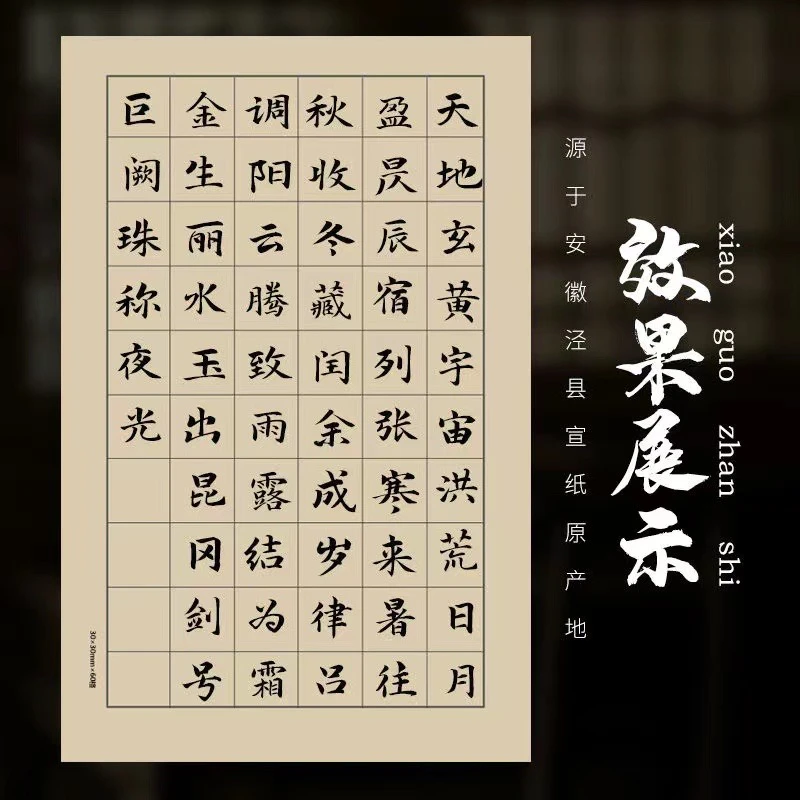 效果展示
xiao guo zhan shi
源于安徽泾县宣纸原产地
天地玄黄宇宙洪荒日月
盈昃辰宿列张寒来暑往
秋收冬藏闰余成岁律吕
调阳云腾致雨露结为霜
金生丽水玉出昆冈剑号
巨阙珠称夜光
30×30mm×60格